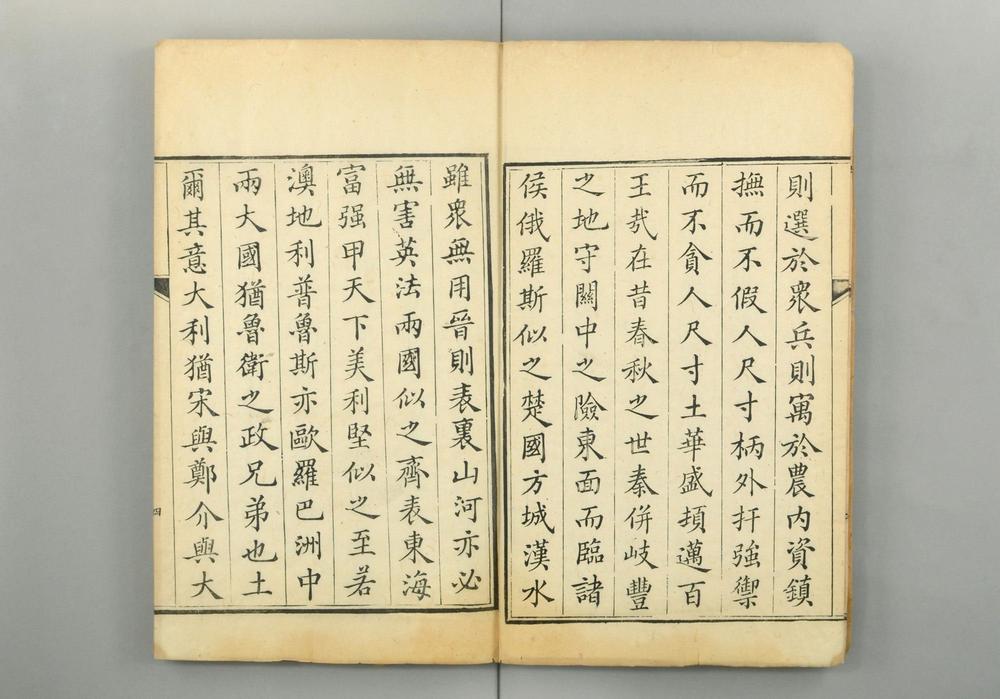 則選於眾兵則寓於農内資鎮
撫而不假人尺寸柄外扞強禦
而不貪人尺寸土華盛頓邁百
王㦲在昔春秋之世秦併岐豐
之地守關中之險東面而臨諸
侯俄羅斯似之楚國方城漢水
雖眾無用晉則表裏山河亦必
無害英法兩國似之齊表東海
富强甲天下美利堅似之至若
澳地利普魯斯亦歐羅巴洲中
兩大國猶魯衛之政兄弟也土
爾其意大利猶宋與鄭介與大
四